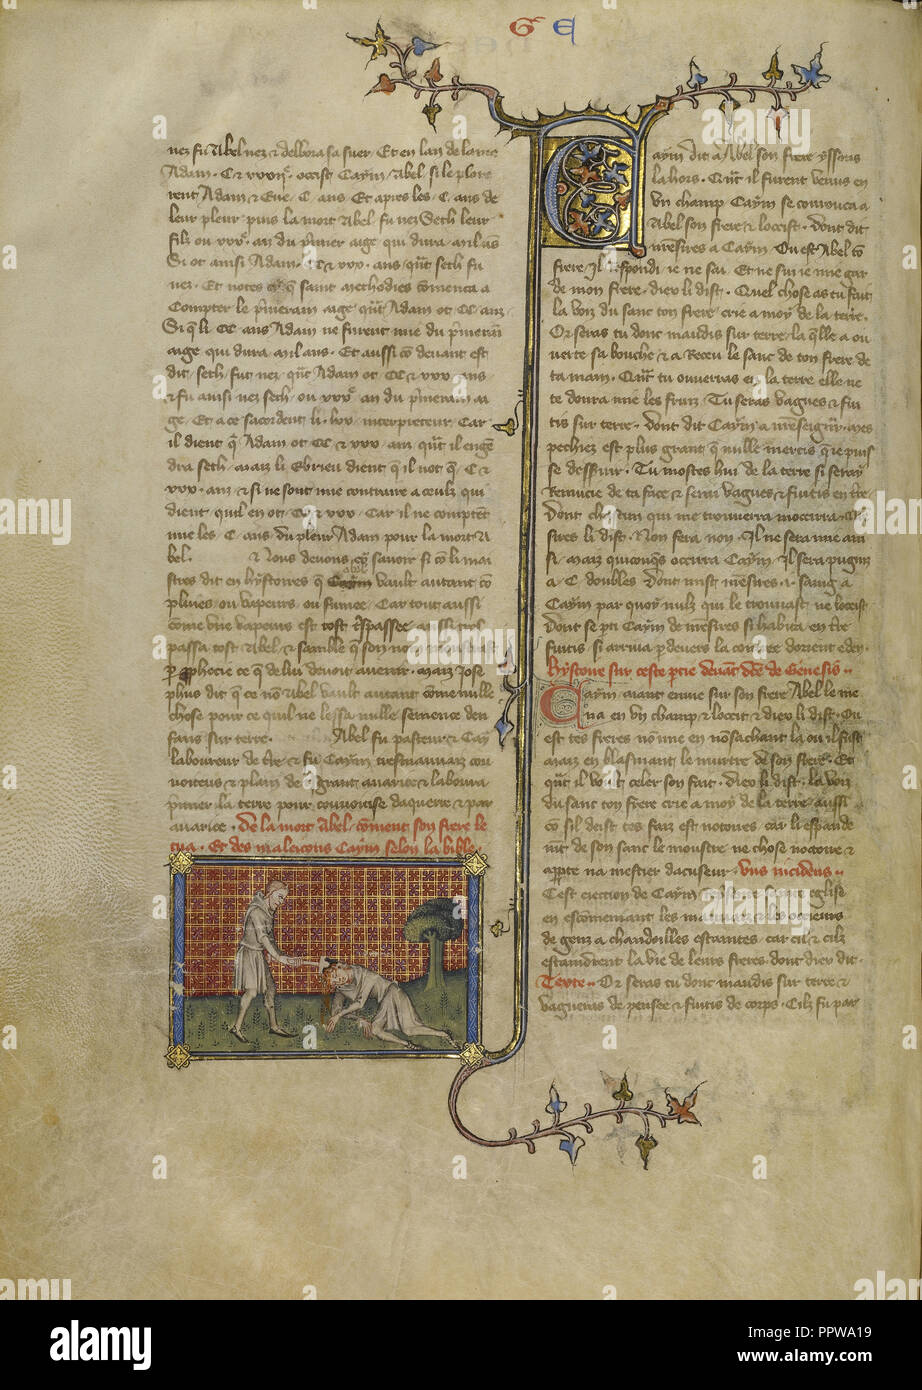 G E
nez fu Abel nez & delbora sa suer. Et en lan de la vie
Adam. C & xxx. occist Caym. Abel. si le plore
rent Adam & Eue. C. ans Et apres les. C. ans de
leur pleur puis la mort Abel fu nez Seth leur
filz ou
an du pmier aige qui dura
Si ot ainsi Adam. CC & xxx. ans. qnt seth fu
nez. Et notes
q saint Methodies comenca a
Compter le pmerain aige qnt Adam ot CC. anz
Si q li CC. ans Adam ne furent mie du pmerain
aige qui dura
ans. Et aussi co deuant est
dit. seth. fut nez. qnt Adam ot. CC & xxx. ans
& fu ainsi nez seth. ou
an du pmerain ai
ge. Et a ce sacordent li. lxx. interpreteur. Car
il dient q Adam ot CC & xxx. ans. qnt il enge
dra seth. maiz li Ebrieu dient q il not q. C &
xxx. anz & si ne sont mie contraire a ceulz qui
dient quil en ot. CC & xxx. Car il ne comptent
mie les. C. ans. du pleur Adam pour la mort A
bel. & Nous deuons
sauoir si co li mai
stres dit en hystoires q
vault autant co
pluies. ou vapeurs. ou fumee. Car tout aussi
come vne vapeurs est tost
aussi
passa tost Abel & samble q son nom
p pphecie ce q de lui deuoit auenir. Maiz Jose
phus dit q ce no Abel vault autant come nulle
chose pour ce quil ne lessa nulle semence den
fans sur terre. Abel fu pasteur & Cay
laboureur de tre & fu Caym tresmauuaiz con
uoiteus & plain de grant auarice & laboura
pmier la terre pour conuoitise daquerre & par
auarice. De la mort Abel. coment son frere le
tua. Et des maleicons Caym selon la bible.
Caym dit a Abel son frere yssons
la hors. Qnt il furent venus en
vn champ Caym se courouca a
Abel son frere & locist. dont dit
nrestres a Caym. Ou est Abel to
frere. Il respondi ie ne sai. Et ne sui ie mie gar
de mon frere. dieu li dist. Quel chose as tu fait
la voiz du sanc ton frere. crie a moy de la terre.
Or seras tu donc maudis sur terre. la qlle a ou
uerte sa bouche & a receu le sanc de ton frere de
ta main. Qnt tu ouuerras en la terre elle ne
te donra mie les fruiz. Tu seras vagues & fui
tis sur terre. dont dit Caym a nreseigur. mes
pechiez est plus grant q nulle mercis q ie puis
se desseruir. Tu mostes hui de la terre si seray
de ta face & serai vagues & fuitis en tre
dont chascun qui me trouuerra mocirra.
stres li dist. Non sera non. Il ne sera mie ain
si. maiz quiconqs occirra Caym. Il sera pugniz
a. C. doubles dont mist nrestres. i. saing a
Caym par quoy nulz qui le trouuast. ne locist
dont se pti Caym de nrestres si habita en tre
fuitis si arriua pdeuers la contree dorient eden.
hystoire sur ceste ptie
de Genesis..
Caym aiant enuie sur son frere Abel le me
na en vn champ & locist & dieu li dist. Ou
est tes freres non mie en nosachant la ou il fust
maiz en blasmant le murtre de son frere. Et
qnt il voult celer son fait. dieu li dist. la voiz
du sanc ton frere crie a moy de la terre. aussi
co sil deist tes faiz est notoires. car li espande
ment de son sanc le monstre. ne chose notoire &
appte na mestier dacuseur. Vns incidens..
Cest eieccion de Caym
eglise
en escomeniant les mauuaiz & les occieurs
de genz a chandoilles estaintes. car cil & cilz
estaindrent la vie de leurs freres. dont dieu dit.
Texte.. Or seras tu donc maudis sur terre &
vaguens de pensee & fuitis de corps. Cilz fu par
a
alamy
alamy
Image ID: PPWA19
www.alamy.com